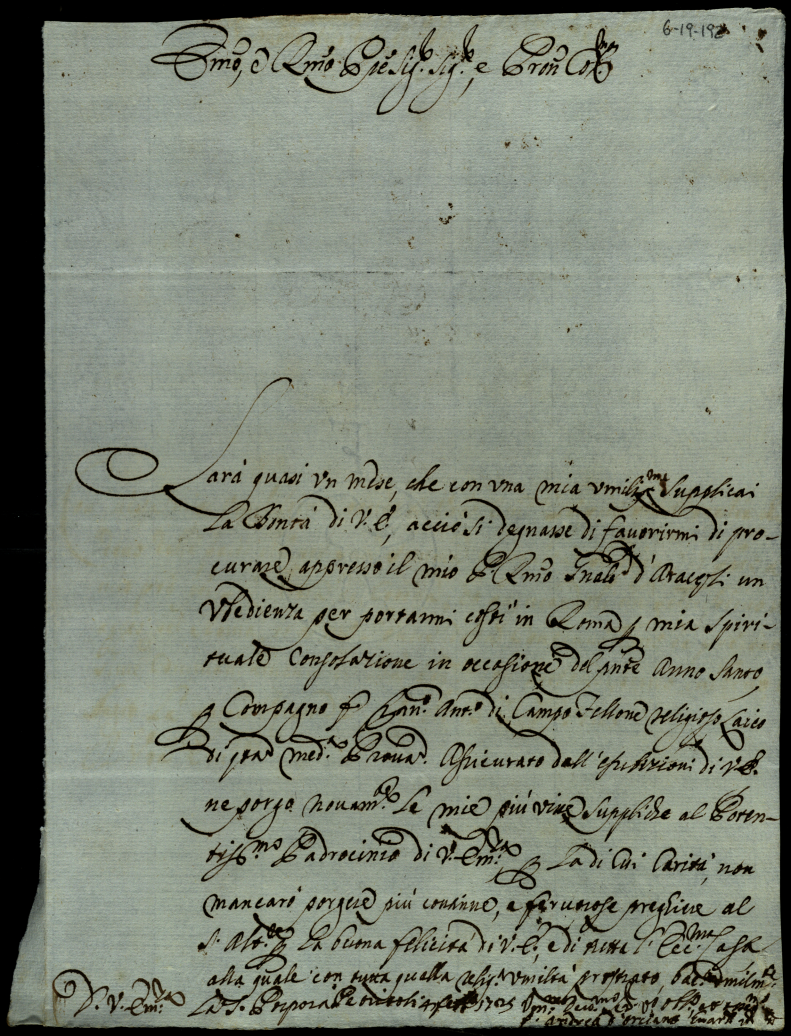 6-19-192
Emo, e Rmo Pñe Sig.r Sig.r, e Pron Col.mo
Sarà quasi vn mese, che con vna mia vmiliss.ma Supplicai
la Bontà di V. E., acciò si degnasse di fauorirmi di pro-
curare appresso il mio P. Rmo Gñale d'Araceli un
Vbedienza per portarmi costì in Roma p mia Spiri-
tuale Consolazione in occasione del pñte Anno Santo
p Compagno f. Ant.o di Campo Fellone religioso Laico
di qta med.a Prou.a Assicurato dall' di V. E.
ne porgo nouam.te le mie più viue Suppliche al Poten-
tiss.mo Padrocinio di V. Em.za p La di Cui Carità, non
mancarò porgere più continue, e feruorose preghiere al
S. Alt.mo p la buona felicità di V. E., e di tutta l' Ecc.ma Casa
alla quale con tutta quella relig.a vmiltà prostrato, bacio vmilm.te
D. V. Em.za La S. Porpora 1725 Vm.mo